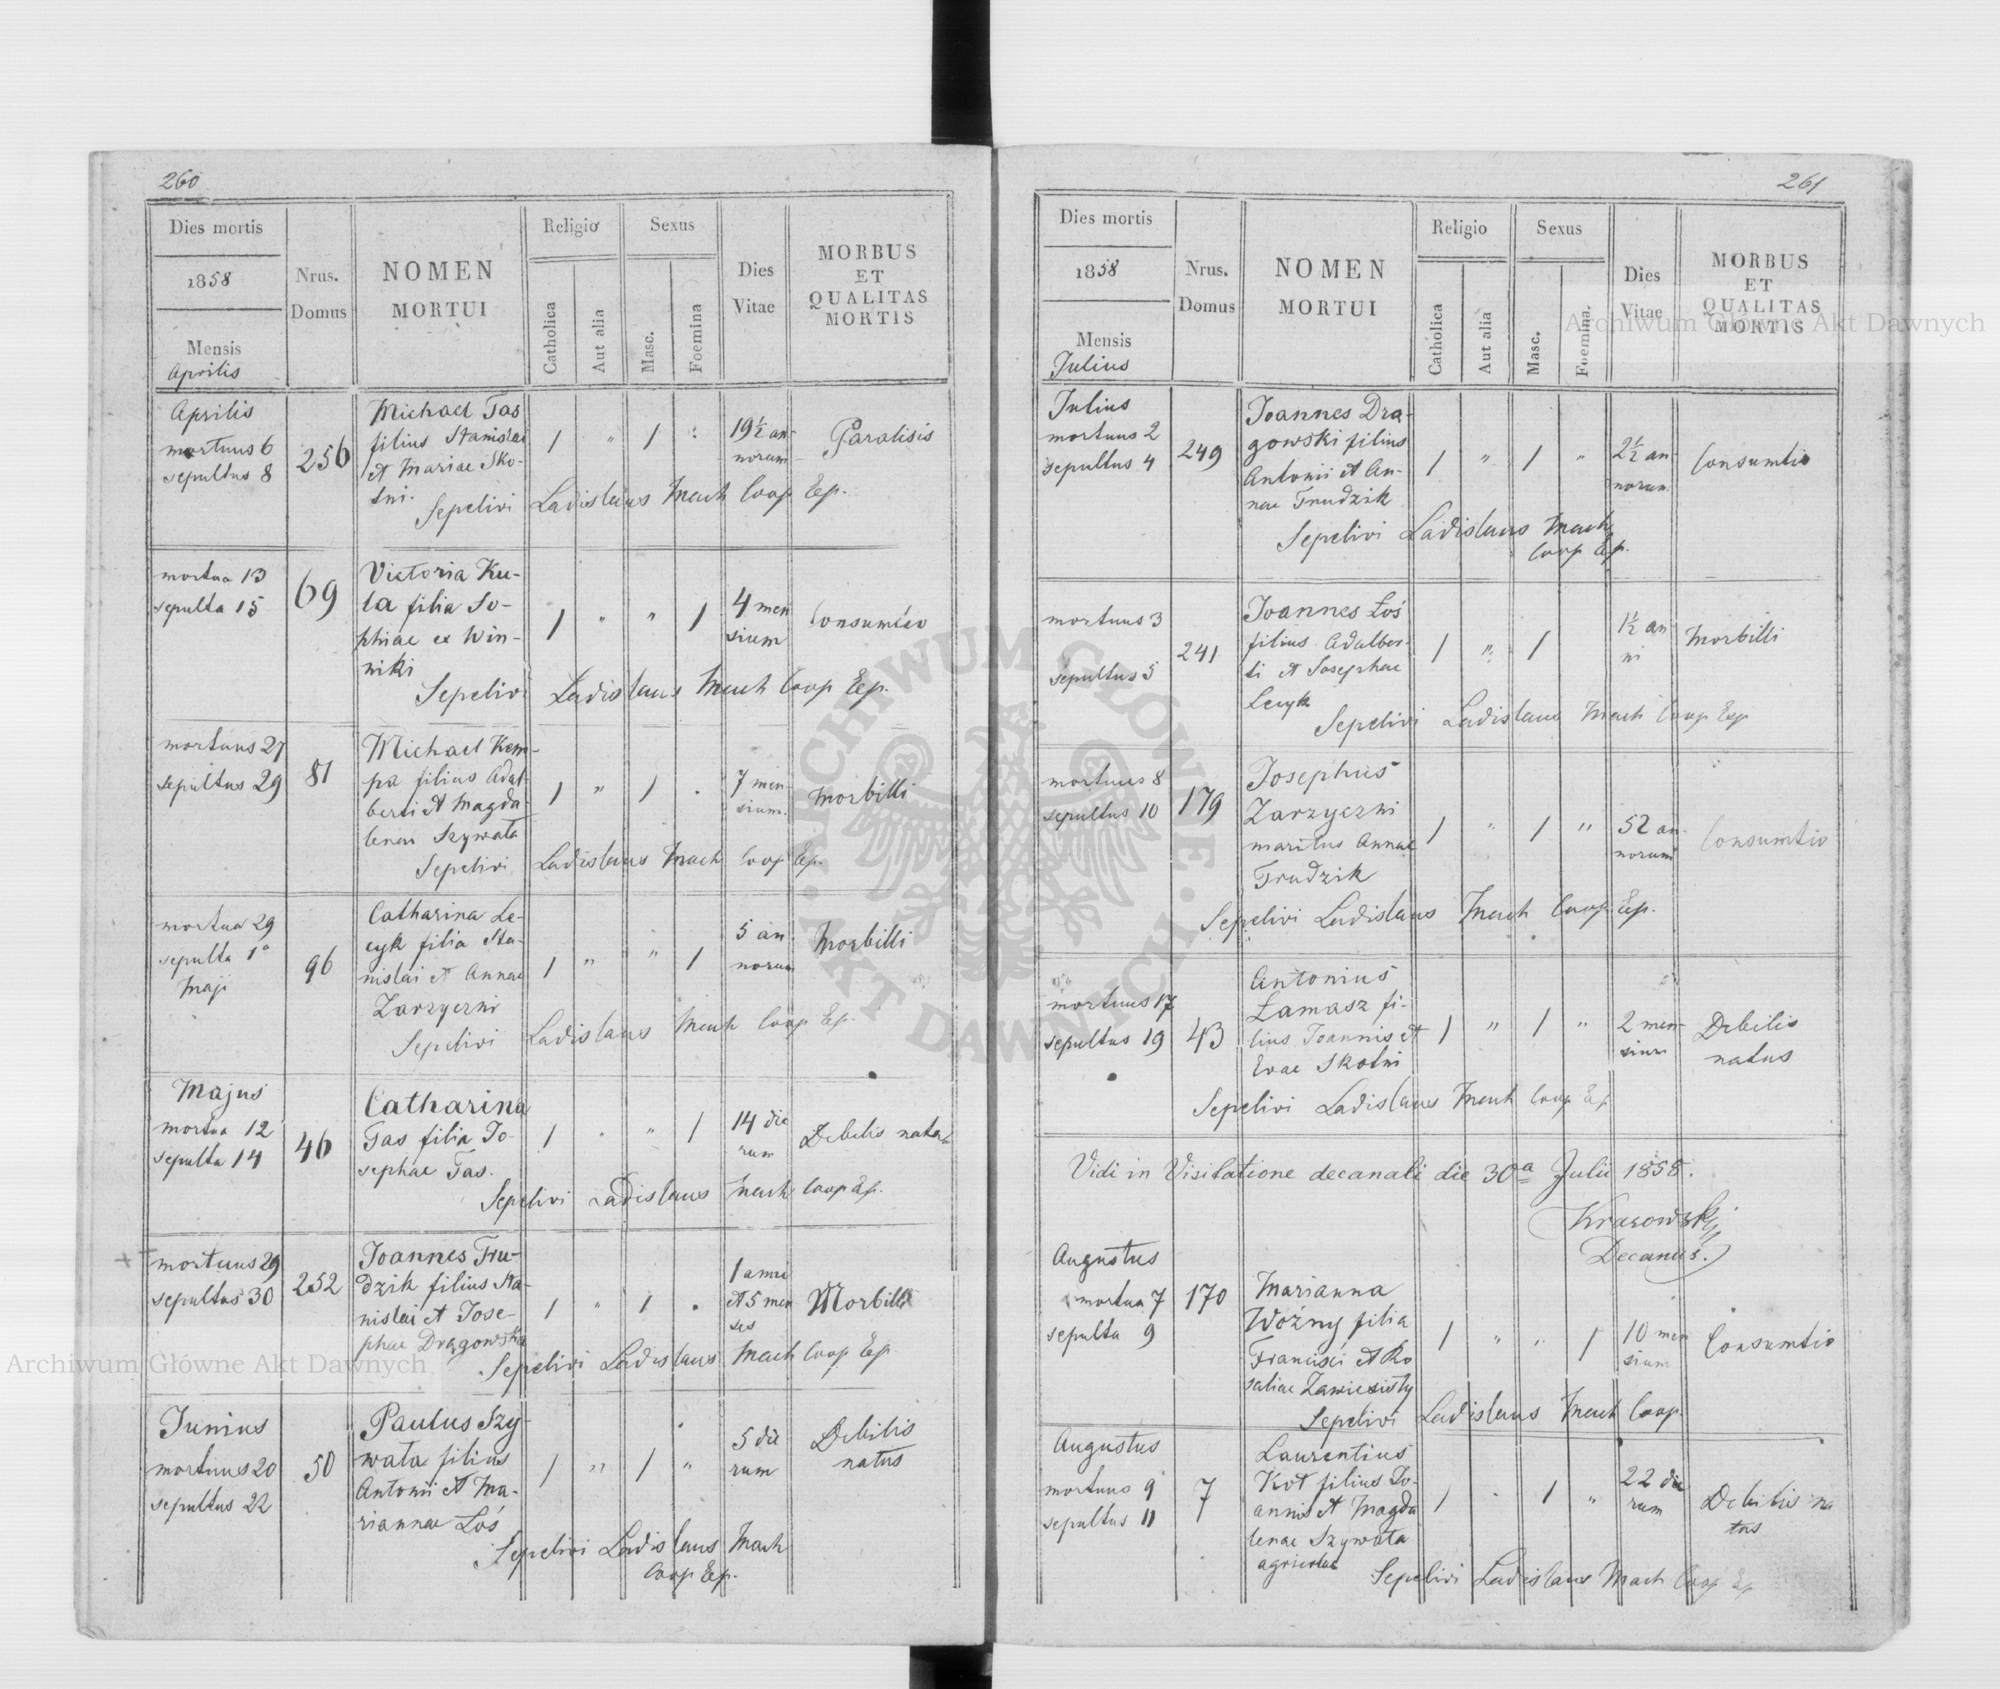 260
Dies mortis
1858
Mensis
Aprilis
Nrus.
Domus
NOMEN
MORTUI
Religio
Catholica
Aut alia
Sexus
Masc.
Foemina
Dies
Vitae
MORBUS
ET
QUALITAS
MORTIS
Aprilis
mortuus 6
sepultus 8
256
Michael Gas
filius Stanislai
et Mariae Sko-
tni.
1 " 1 "
19½ an-
norum
Paralisis
Sepelivi Ladislaus Mach Coop Exp.
mortua 13
sepulta 15
69
Victoria Ku-
la filia So-
phiae ex Win-
niki
1 " " 1
4 men
sium
Consumtio
Sepelivi Ladislaus Mach Coop Exp.
mortuus 27
sepultus 29
81
Michael Kem-
pa filius Adal-
berti et Magda-
lenae Szywala
1 " 1 "
7 men-
sium.
Morbilli
Sepelivi Ladislaus Mach Coop Exp.
mortua 29
sepulta 1a
Maji
96
Catharina Le-
cyk filia Sta-
nislai et Annae
Zarzyczni
1 " " 1
5 an-
norum
Morbilli
Sepelivi Ladislaus Mach Coop Exp.
Majus
mortua 12
sepulta 14
46
Catharina
Gas filia Jo-
sephae Gas.
1 " " 1
14 die
rum
Debilis nata
Sepelivi Ladislaus Mach Coop Exp.
mortuus 29
sepultus 30
252
Joannes Fru-
dzik filius Sta-
nislai et Jose-
phae Dragowska
1 " 1 "
1 anni
et 5 men
ses
Morbilli
Sepelivi Ladislaus Mach Coop Exp.
Junius
mortuus 20
sepultus 22
50
Paulus Szy-
wala filius
Antonii et Ma-
riannae Łoś
1 " 1 "
5 die
rum
Debilis
natus
Sepelivi Ladislaus Mach
Coop Exp.
261
Dies mortis
1858
Mensis
Julius
Nrus.
Domus
NOMEN
MORTUI
Religio
Catholica
Aut alia
Sexus
Masc.
Foemina.
Dies
Vitae
MORBUS
ET
QUALITAS
MORTIS
Archiwum Główne Akt Dawnych
Julius
mortuus 2
sepultus 4
249
Joannes Dra-
gowski filius
Antonii et An-
nae Frudzik
1 " 1 "
2½ an-
norum
Consumtio
Sepelivi Ladislaus Mach
Coop Exp.
mortuus 3
sepultus 5
241
Joannes Łoś
filius Adalber-
ti et Josephae
Lecyk
1 " 1
1½ an
ni
Morbilli
Sepelivi Ladislaus Mach Coop Exp
mortuus 8
sepultus 10
179
Josephus
Zarzyczni
maritus Annae
Frudzik
1 " 1 "
52 an-
norum
Consumtio
Sepelivi Ladislaus Mach Coop Exp.
mortuus 17
sepultus 19
43
Antonius
Łamasz fi-
lius Joannis et
Evae Skotni
1 " 1 "
2 men-
sium
Debilis
natus
Sepelivi Ladislaus Mach Coop Exp
Vidi in Visitatione decanali die 30a Julii 1858.
Krasowskij
Decanus.
Augustus
mortua 7
sepulta 9
170
Marianna
Woźny filia
Francisci et Ro
saliae Zawiesisty
1 " " 1
10 men
sium
Consumtio
Sepelivi Ladislaus Mach Coop.
Augustus
mortuus 9
sepultus 11
7
Laurentius
Kot filius Jo-
annis et Magda
lenae Szywala
agricolae
1 " 1 "
22 die
rum
Debilis na
tus
Sepelivi Ladislaus Mach Coop Exp
Archiwum Główne Akt Dawnych
ARCHIWUM GŁÓWNE AKT DAWNYCH